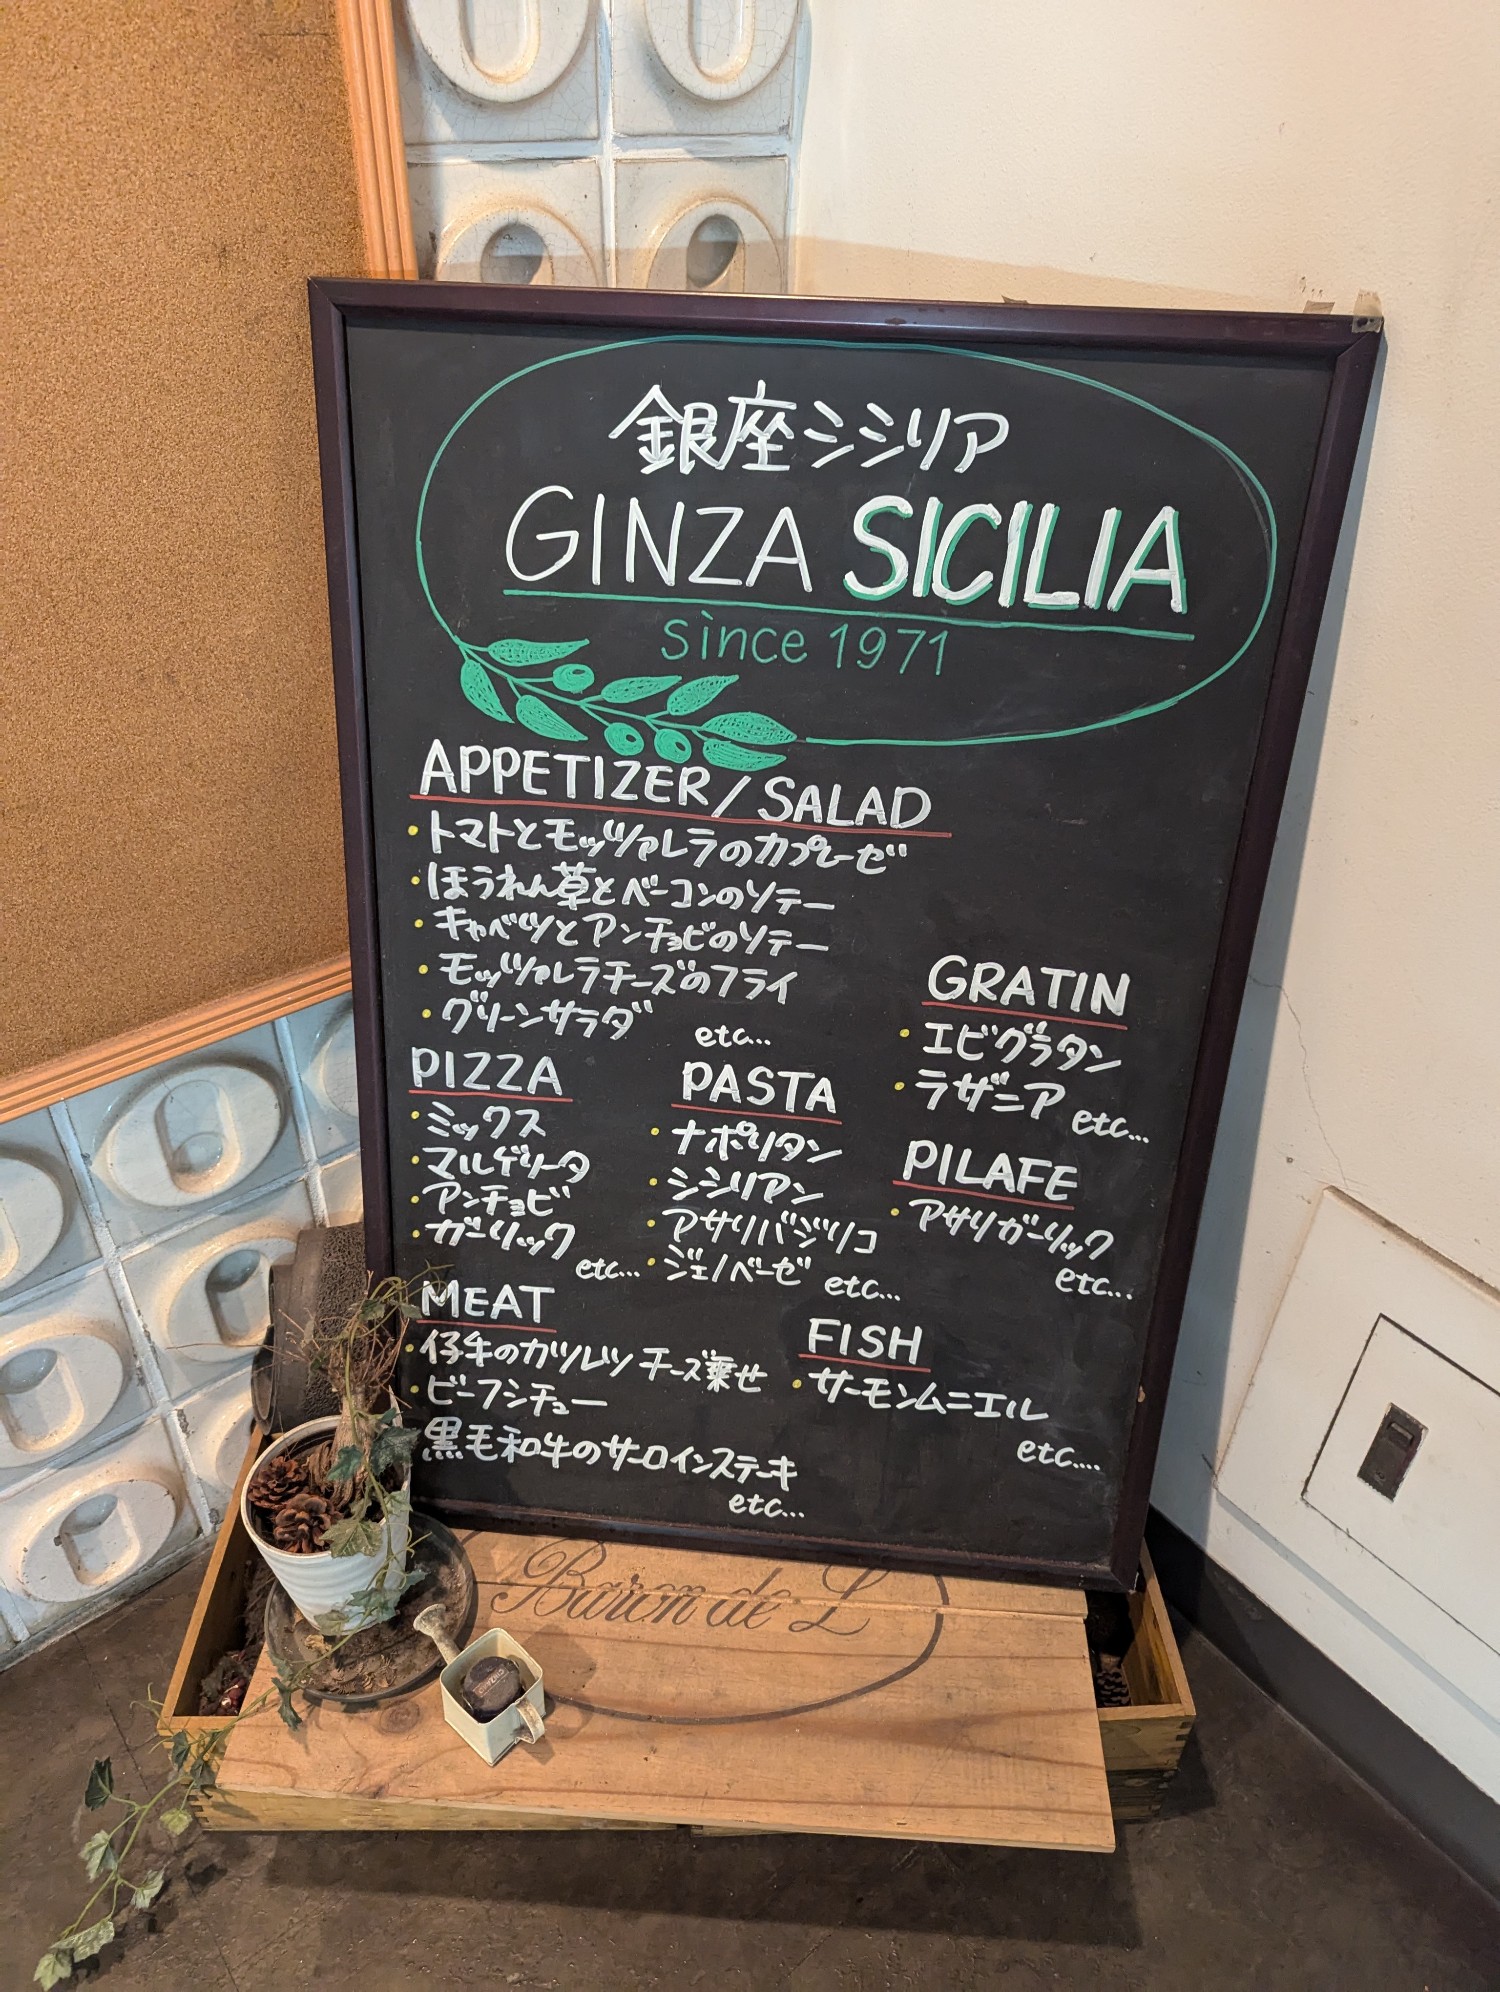 銀座シシリア
GINZA SICILIA
since 1971
APPETIZER/SALAD
・トマトとモッツァレラのカプレーゼ
・ほうれん草とベーコンのソテー
・キャベツとアンチョビのソテー
・モッツァレラチーズのフライ
・グリーンサラダ
etc...
GRATIN
・エビグラタン
・ラザニア
etc...
PIZZA
・ミックス
・マルゲリータ
・アンチョビ
・ガーリック
etc...
PASTA
・ナポリタン
・シシリアン
・アサリバジリコ
・ジェノベーゼ
etc...
PILAFE
・アサリガーリック
etc...
MEAT
・仔牛のカツレツ チーズ乗せ
・ビーフシチュー
黒毛和牛のサーロインステーキ
etc...
FISH
・サーモンムニエル
etc....
Baron de L